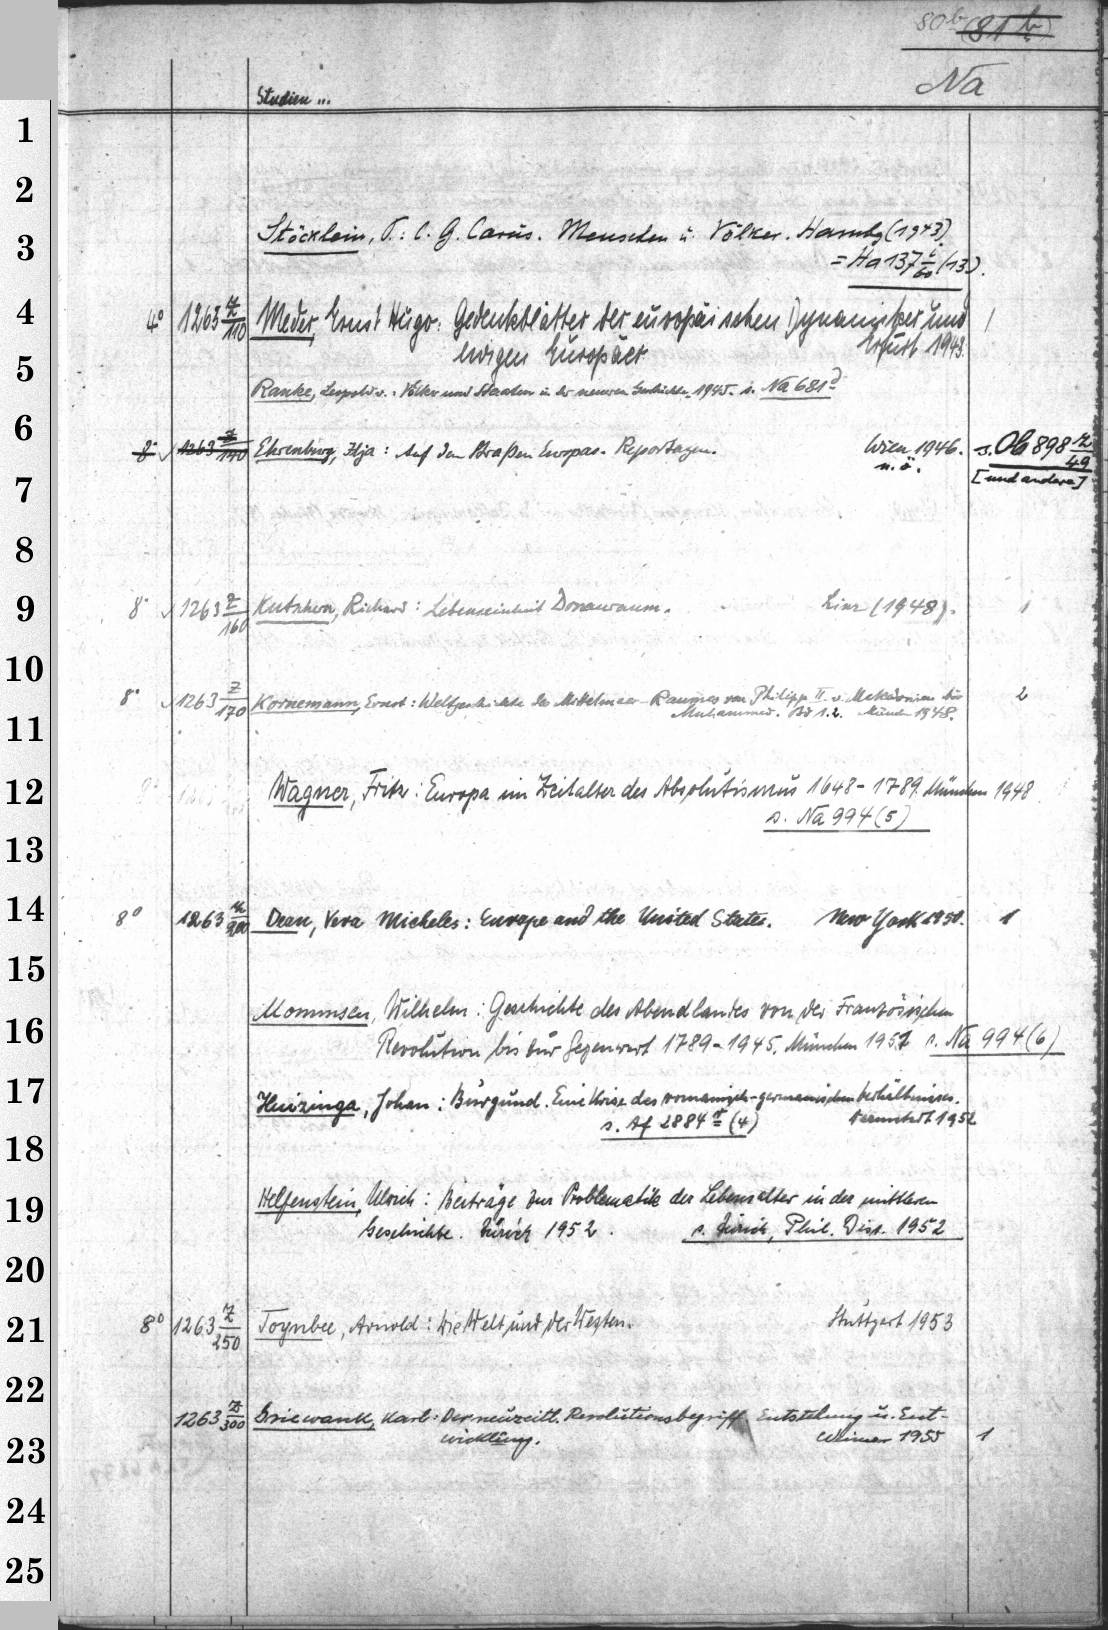 80b (81b)
Na
Studien ...
1
2
3 Stöcklein, P.: C. G. Carus. Menschen u. Völker. Hambg (1943).
= Ha 137 i/60 (13).
4 4° 1263 Z/110 Meder, Ernst Hugo: Gedenkblätter der europäischen Dynamiker und 1
5 ewigen Europäer Erfurt 1943.
Ranke, Leopold v.: Völker und Staaten in der neueren Geschichte. 1945. s. Na 681 d
6
8° 1263 Z/140 Ehrenburg, Ilja: Auf den Straßen Europas. Reportagen. Wien 1946. s. Ob 898 z/49
u. ö. [und andere]
7
8
9 8° 1263 Z/160 Kutschera, Richard: Lebenseinheit Donauraum. Linz (1948). 1
10
8° 1263 Z/170 Kornemann, Ernst: Weltgeschichte des Mittelmeer-Raumes von Philipp II. v. Makedonien bis 2
11 Muhammed. Bd 1.2. München 1948.
12 Wagner, Fritz: Europa im Zeitalter des Absolutismus 1648-1789. München 1948
s. Na 994 (5)
13
14 8° 1263 Z/200 Dean, Vera Micheles: Europe and the United States. New York 1950. 1
15
16 Mommsen, Wilhelm: Geschichte des Abendlandes von der Französischen
Revolution bis zur Gegenwart 1789-1945. München 1951 s. Na 994 (6)
17 Huizinga, Johan: Burgund. Eine Krise des romanisch-germanischen Verhältnisses.
s. Af 2884 (4) Darmstadt 1952
18
19 Helfenstein, Ulrich: Beiträge zur Problematik der Lebensalter in der mittleren
Geschichte. Zürich 1952. s. Zürich, Phil. Diss. 1952
20
21 8° 1263 Z/250 Toynbee, Arnold: Die Welt und der Westen. Stuttgart 1953
22
1263 Z/300 Griewank, Karl: Der neuzeitl. Revolutionsbegriff Entstehung u. Ent-
23 wicklung. Weimar 1955 1
24
25